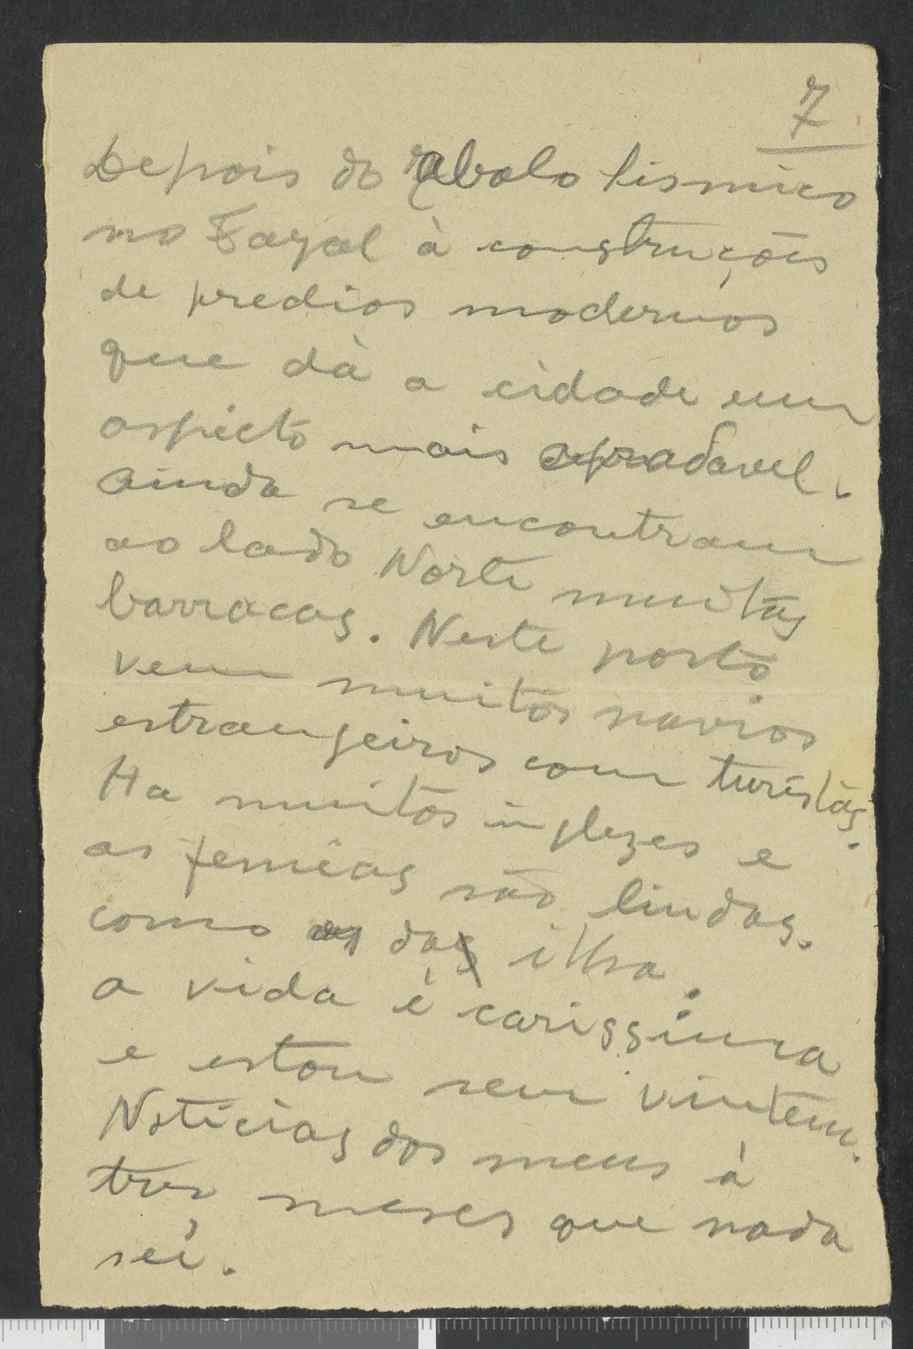 7
Depois do abalo sismico
no Fayal à construções
de predios modernos
que dà a cidade um
aspécto mais agradavel.
Ainda se encontram
ao lado Norte muitas
barracas. Neste porto
vem muitos navios
estrangeiros com turistas.
Ha muitos inglezes e
as femêas são lindas.
como as das ilha.
a vida é carissima
e estou sem vintem.
Noticias dos meus à
tres meses que nada
sei.